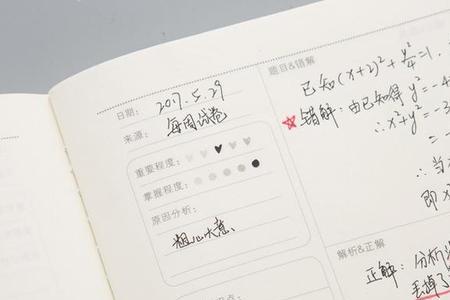 日期: 2017.5.29
来源: 每周试卷
重要程度:
掌握程度:
原因分析:
粗心大意.
题目&错解
已知(x+2)²+y²/4=1.
错解: 由已知得 y²=-4
∴x²+y²=-3
=-
∴当
即x
解析&正解
正解: 分析
丢掉了